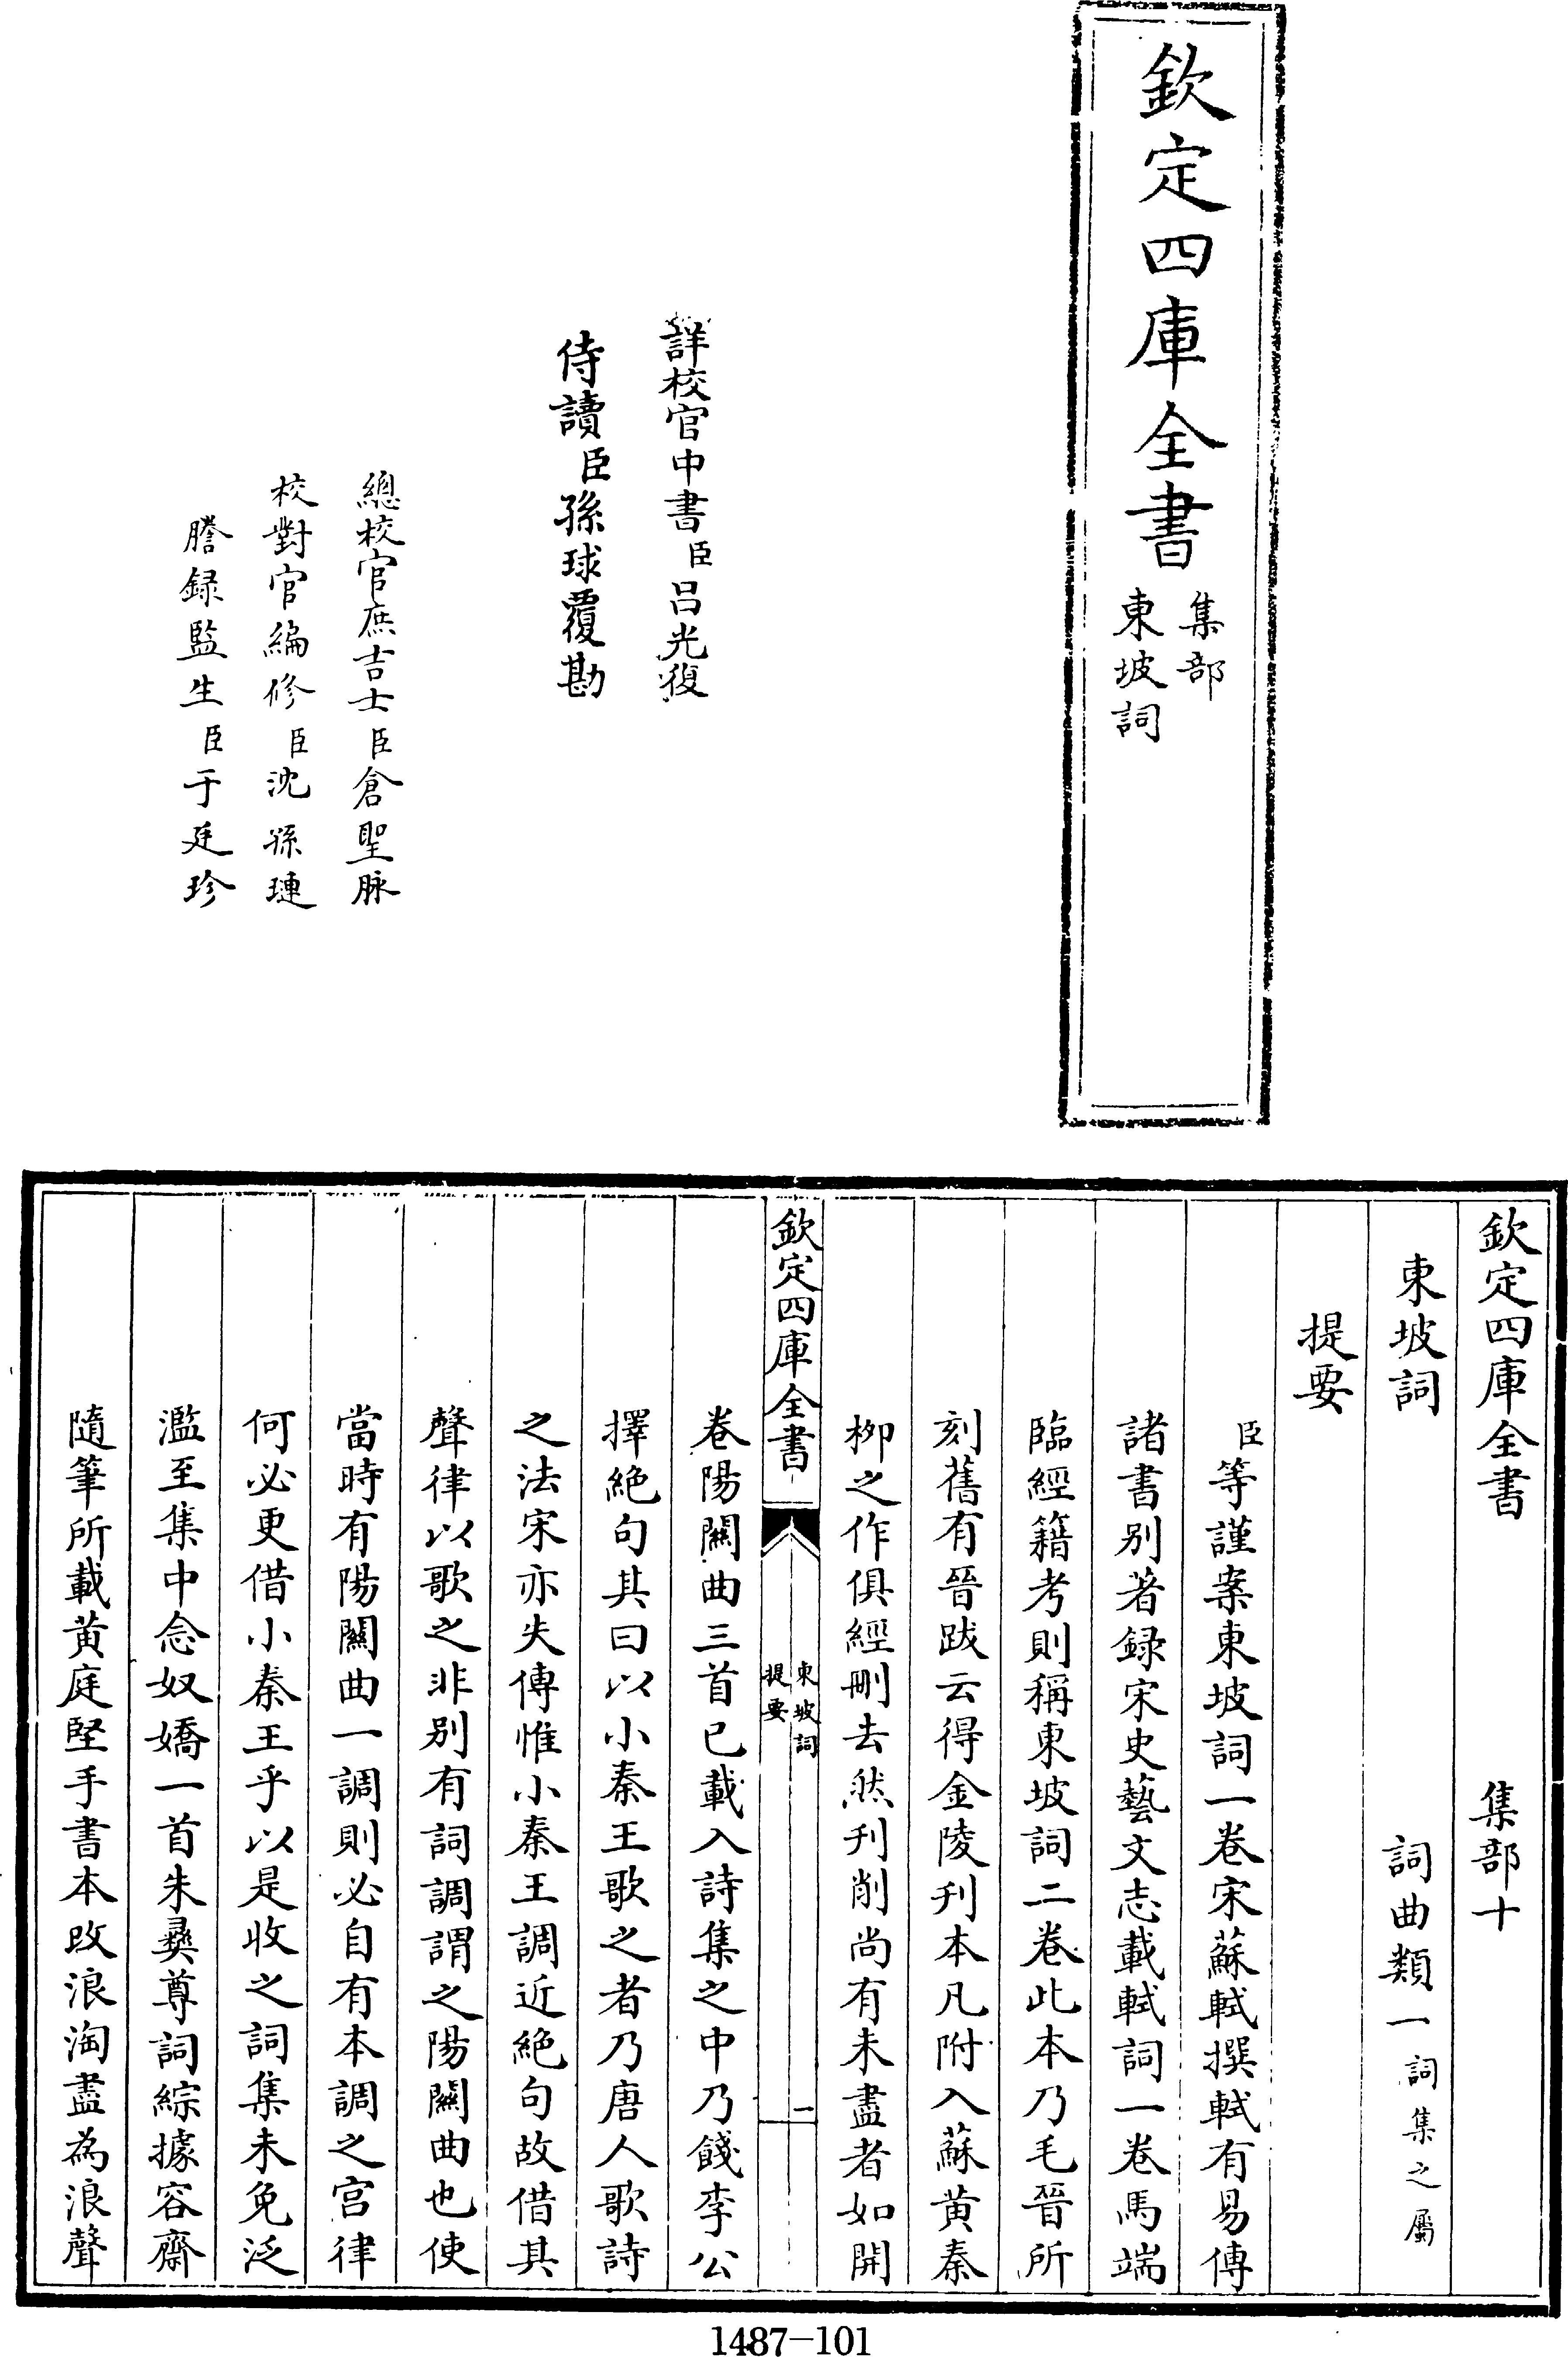 欽定四庫全書
集部
東坡詞
詳校官中書臣呂光復
侍讀臣孫球覆勘
總校官庶吉士臣倉聖脉
校對官編修臣沈孫璉
謄録監生臣于廷珍
欽定四庫全書 集部十
東坡詞 詞曲類一詞集之屬
提要
臣等謹案東坡詞一卷宋蘇軾撰軾有易傳
諸書别著録宋史藝文志載軾詞一卷馬端
臨經籍考則稱東坡詞二卷此本乃毛晉所
刻舊有晉跋云得金陵刊本凡附入蘇黄秦
栁之作俱經刪去然刋削尚有未盡者如開
欽定四庫全書
東坡詞
提要
一
卷陽關曲三首已載入詩集之中乃餞李公
擇絶句其曰以小秦王歌之者乃唐人歌詩
之法宋亦失傳惟小秦王調近絶句故借其
聲律以歌之非别有詞調謂之陽關曲也使
當時有陽關曲一調則必自有本調之宫律
何必更借小秦王乎以是收之詞集未免泛
濫至集中念奴嬌一首朱彝尊詞綜據容齋
隨筆所載黄庭堅手書本改浪淘盡為浪聲
1487-101